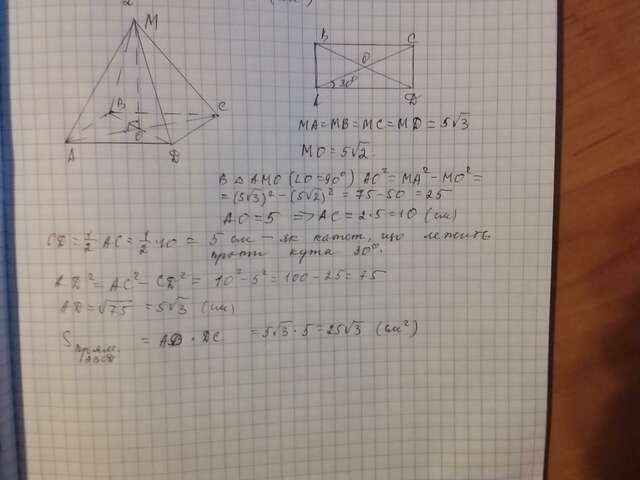 M
B
C
A
O
D
B
C
O
A
30°
D
MA=MB=MC=MD=5√3
MO=5√2.
В △ AMO (∠O=90°) AC²=MA²-MO²=
=(5√3)²-(5√2)²=75-50=25
AO=5 => AC=2·5=10 (см)
CD=1/2 AC=1/2·10= 5 см - як катет, що лежить
проти кута 30°.
AD²=AC²-CD²= 10²-5²=100-25=75
AD=√75 =5√3 (см)
Sпрям. ABCD = AD · DC =5√3·5=25√3 (см²)